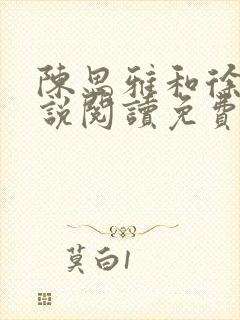 陳思雅和徐
說閱讀免費
莫白1